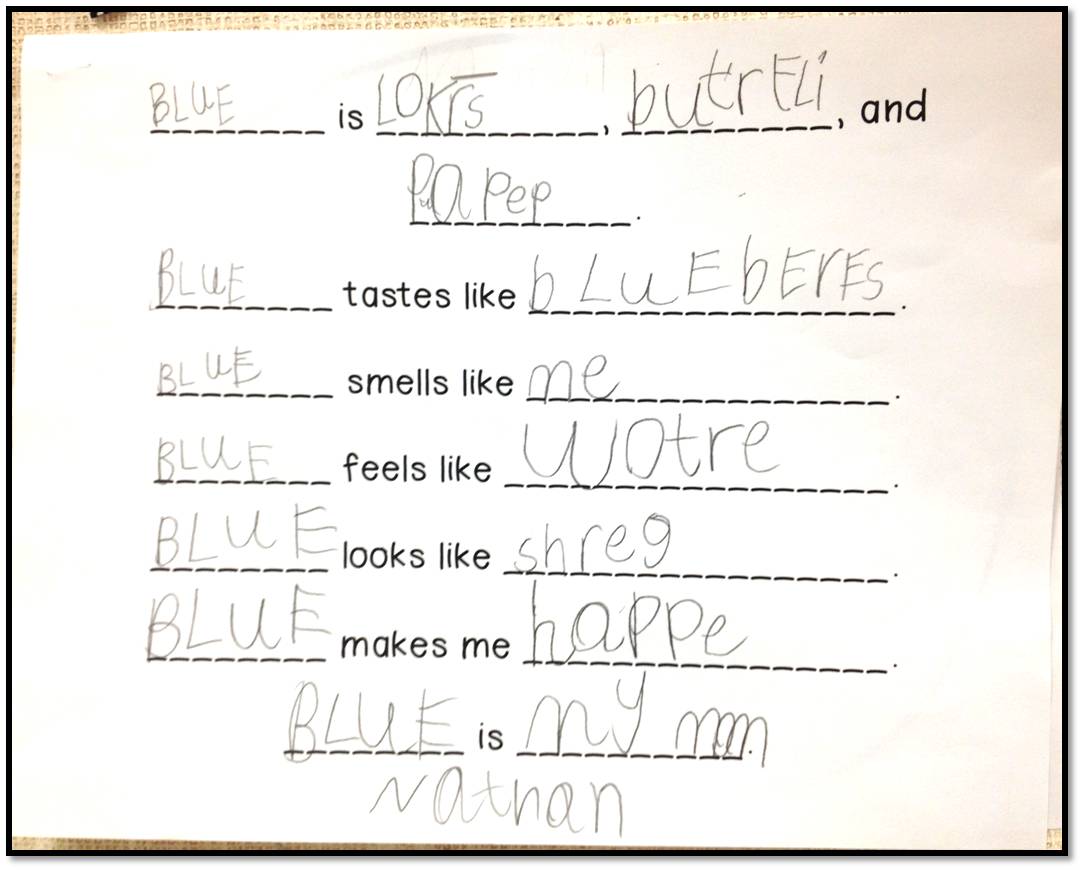 BLUE is LOKrs, butrELi, and
papep.
BLUE tastes like bLUEbErEs.
BLUE smells like me.
BLUE feels like wotre.
BLUE looks like shreg.
BLUE makes me happe.
BLUE is my mom
Nathan